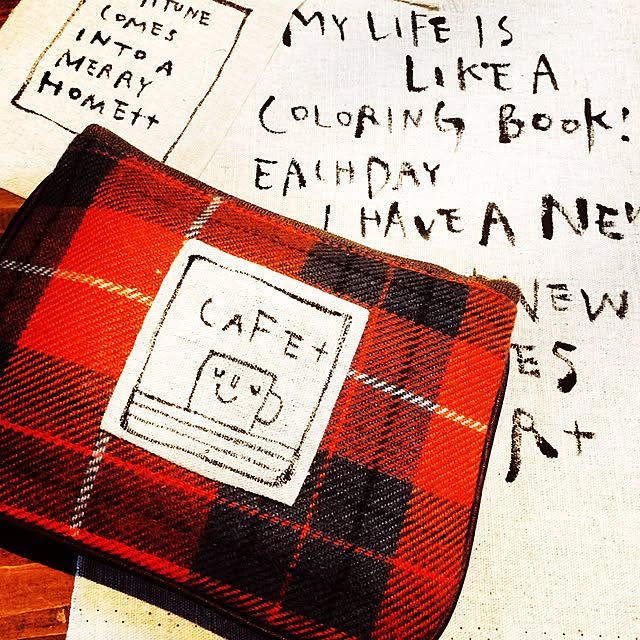 COMES
INTO A
MERRY
HOME++
MY LIFE IS
LIKE A
COLORING BOOK!
EACH DAY
I HAVE A
NEW
CAFE+